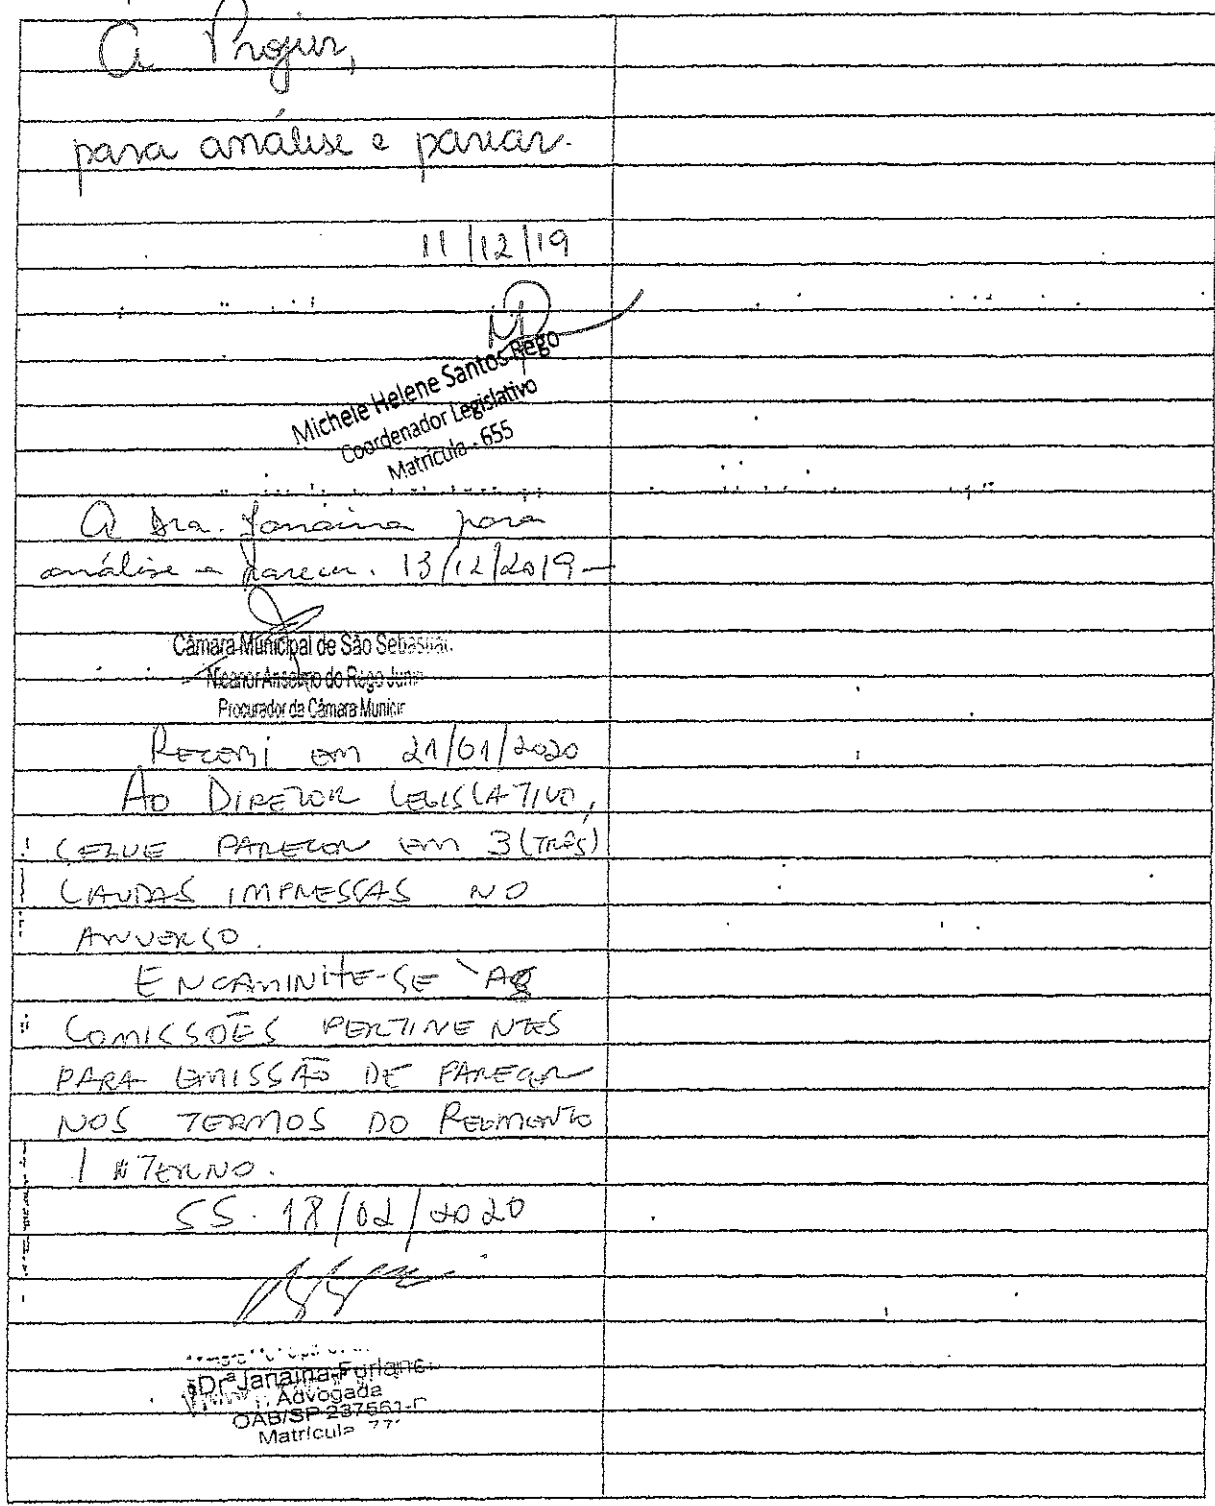 À Projur,
para análise e parecer.
11/12/19
Michele Helene Santos Rego
Coordenador Legislativo
Matrícula - 655
A Dra. Janaina para
análise e parecer. 13/12/2019
Câmara Municipal de São Sebastião
Nicanor Anselmo do Rego Junior
Procurador da Câmara Munici
RECEBI EM 21/01/2020
AO DIRETOR LEGISLATIVO,
SEGUE PARECER EM 3 (TRÊS)
LAUDAS IMPRESSAS NO
ANVERSO.
ENCAMINHE-SE ÀS
COMISSÕES PERTINENTES
PARA EMISSÃO DE PARECER
NOS TERMOS DO REGIMENTO
INTERNO.
SS. 18/02/2020
Drª Janaina Furlane
Advogada
OAB/SP 237561
Matrícula 77